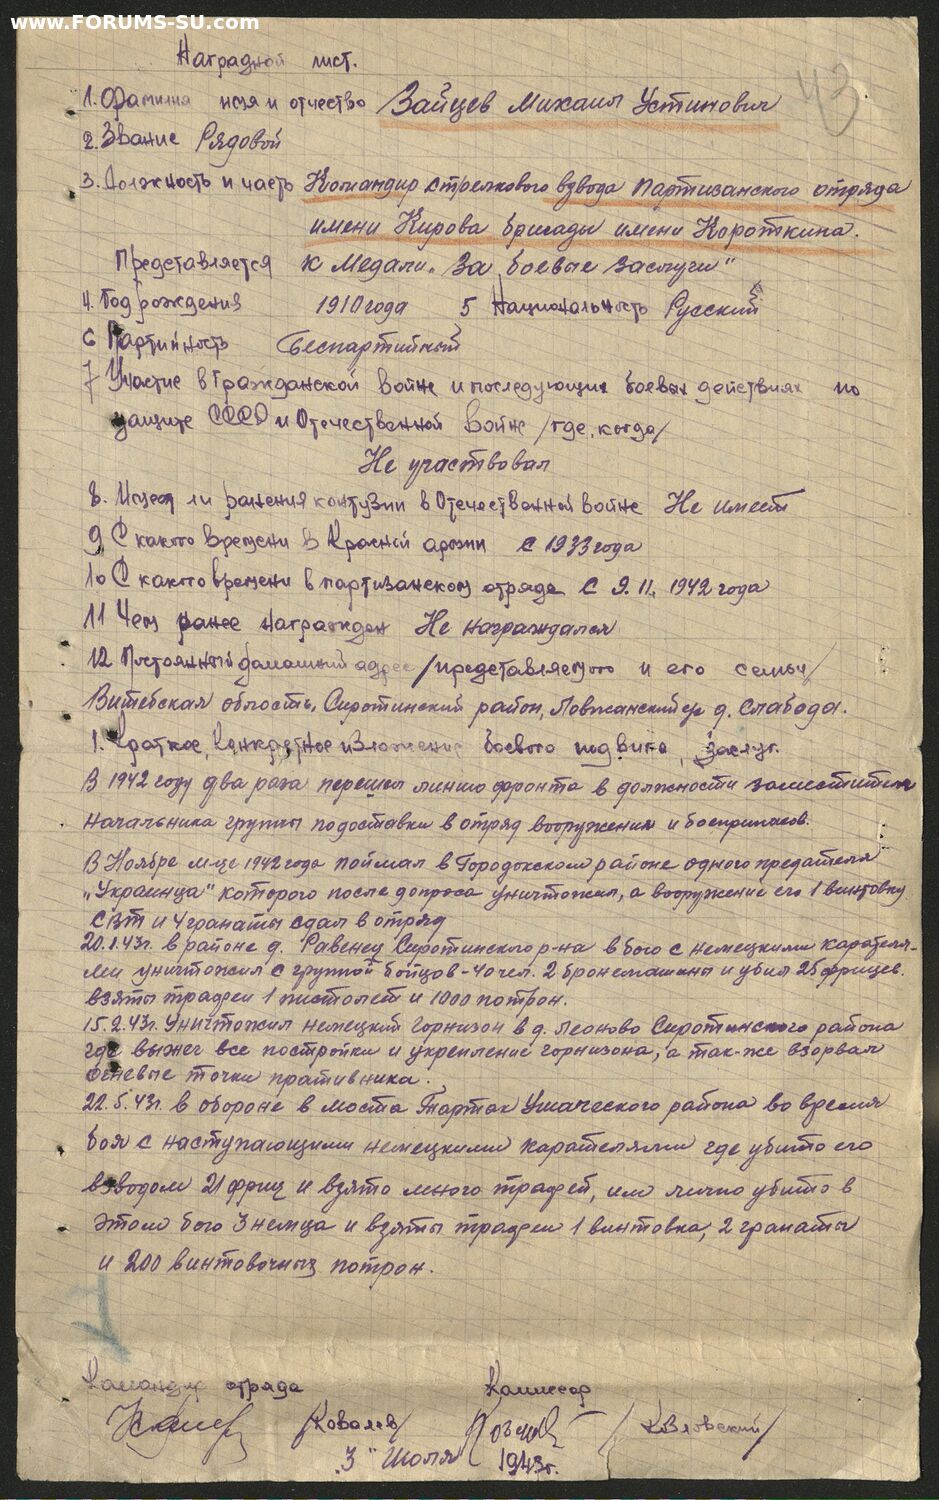 www.FORUMS-SU.com
43
Наградной лист.
1. Фамилия имя и отчество Зайцев Михаил Устинович
2. Звание Рядовой
3. Должность и часть Командир стрелкового взвода партизанского отряда
имени Кирова бригады имени Короткина.
Представляется к Медали „За боевые заслуги"
4. Год рождения 1910 года 5 Национальность Русский
6 Партийность Беспартийный
7 Участие в Гражданской войне и последующих боевых действиях по
защите СССР и Отечественной войне /где, когда/
Не участвовал
8. Имеет ли ранения контузии в Отечественной войне Не имеет
9 С какого времени в Красной армии с 1933 года
10 С какого времени в партизанском отряде с 9.11.1942 года
11 Чем ранее награжден Не награждался
12 Постоянный домашний адрес /представляемого и его семьи/
Витебская область, Сиротинский район, Ловжанский д. Слабода.
1. Краткое, конкретное изложение боевого подвига, заслуг.
В 1942 году два раза перешел линию фронта в должности заместителя
начальника группы по доставки в отряд вооружения и боеприпасов.
В Ноябре м-це 1942 года поймал в Городокском районе одного предателя
„Украинца" которого после допроса уничтожил, а вооружение его 1 винтовку
СВТ и 4 гранаты сдал в отряд
20.1.43г. в районе д. Равенец Сиротинского р-на в бою с немецкими карателя-
ми уничтожил с группой бойцов - 40 чел. 2 бронемашины и убил 25 фрицев.
взяты трафеи 1 пистолет и 1000 потрон.
15.2.43г. Уничтожил немецкий горнизон в д. Леоново Сиротинского района
где выжег все постройки и укрепление горнизона, а так-же взорвал
огневые точки пративника.
22.5.43г. в обороне в моста Тартак Ушаческого района во время
боя с наступающими немецкими карателями где убито его
взводом 21 фриц и взято много трафей, им лично убито в
этом бою 3 немца и взяты трафеи 1 винтовка, 2 гранаты
и 200 винтовочных потрон.
Командир отряда Комиссар
/Ковалев/ /Козловский/
„3" Июля 1943г.